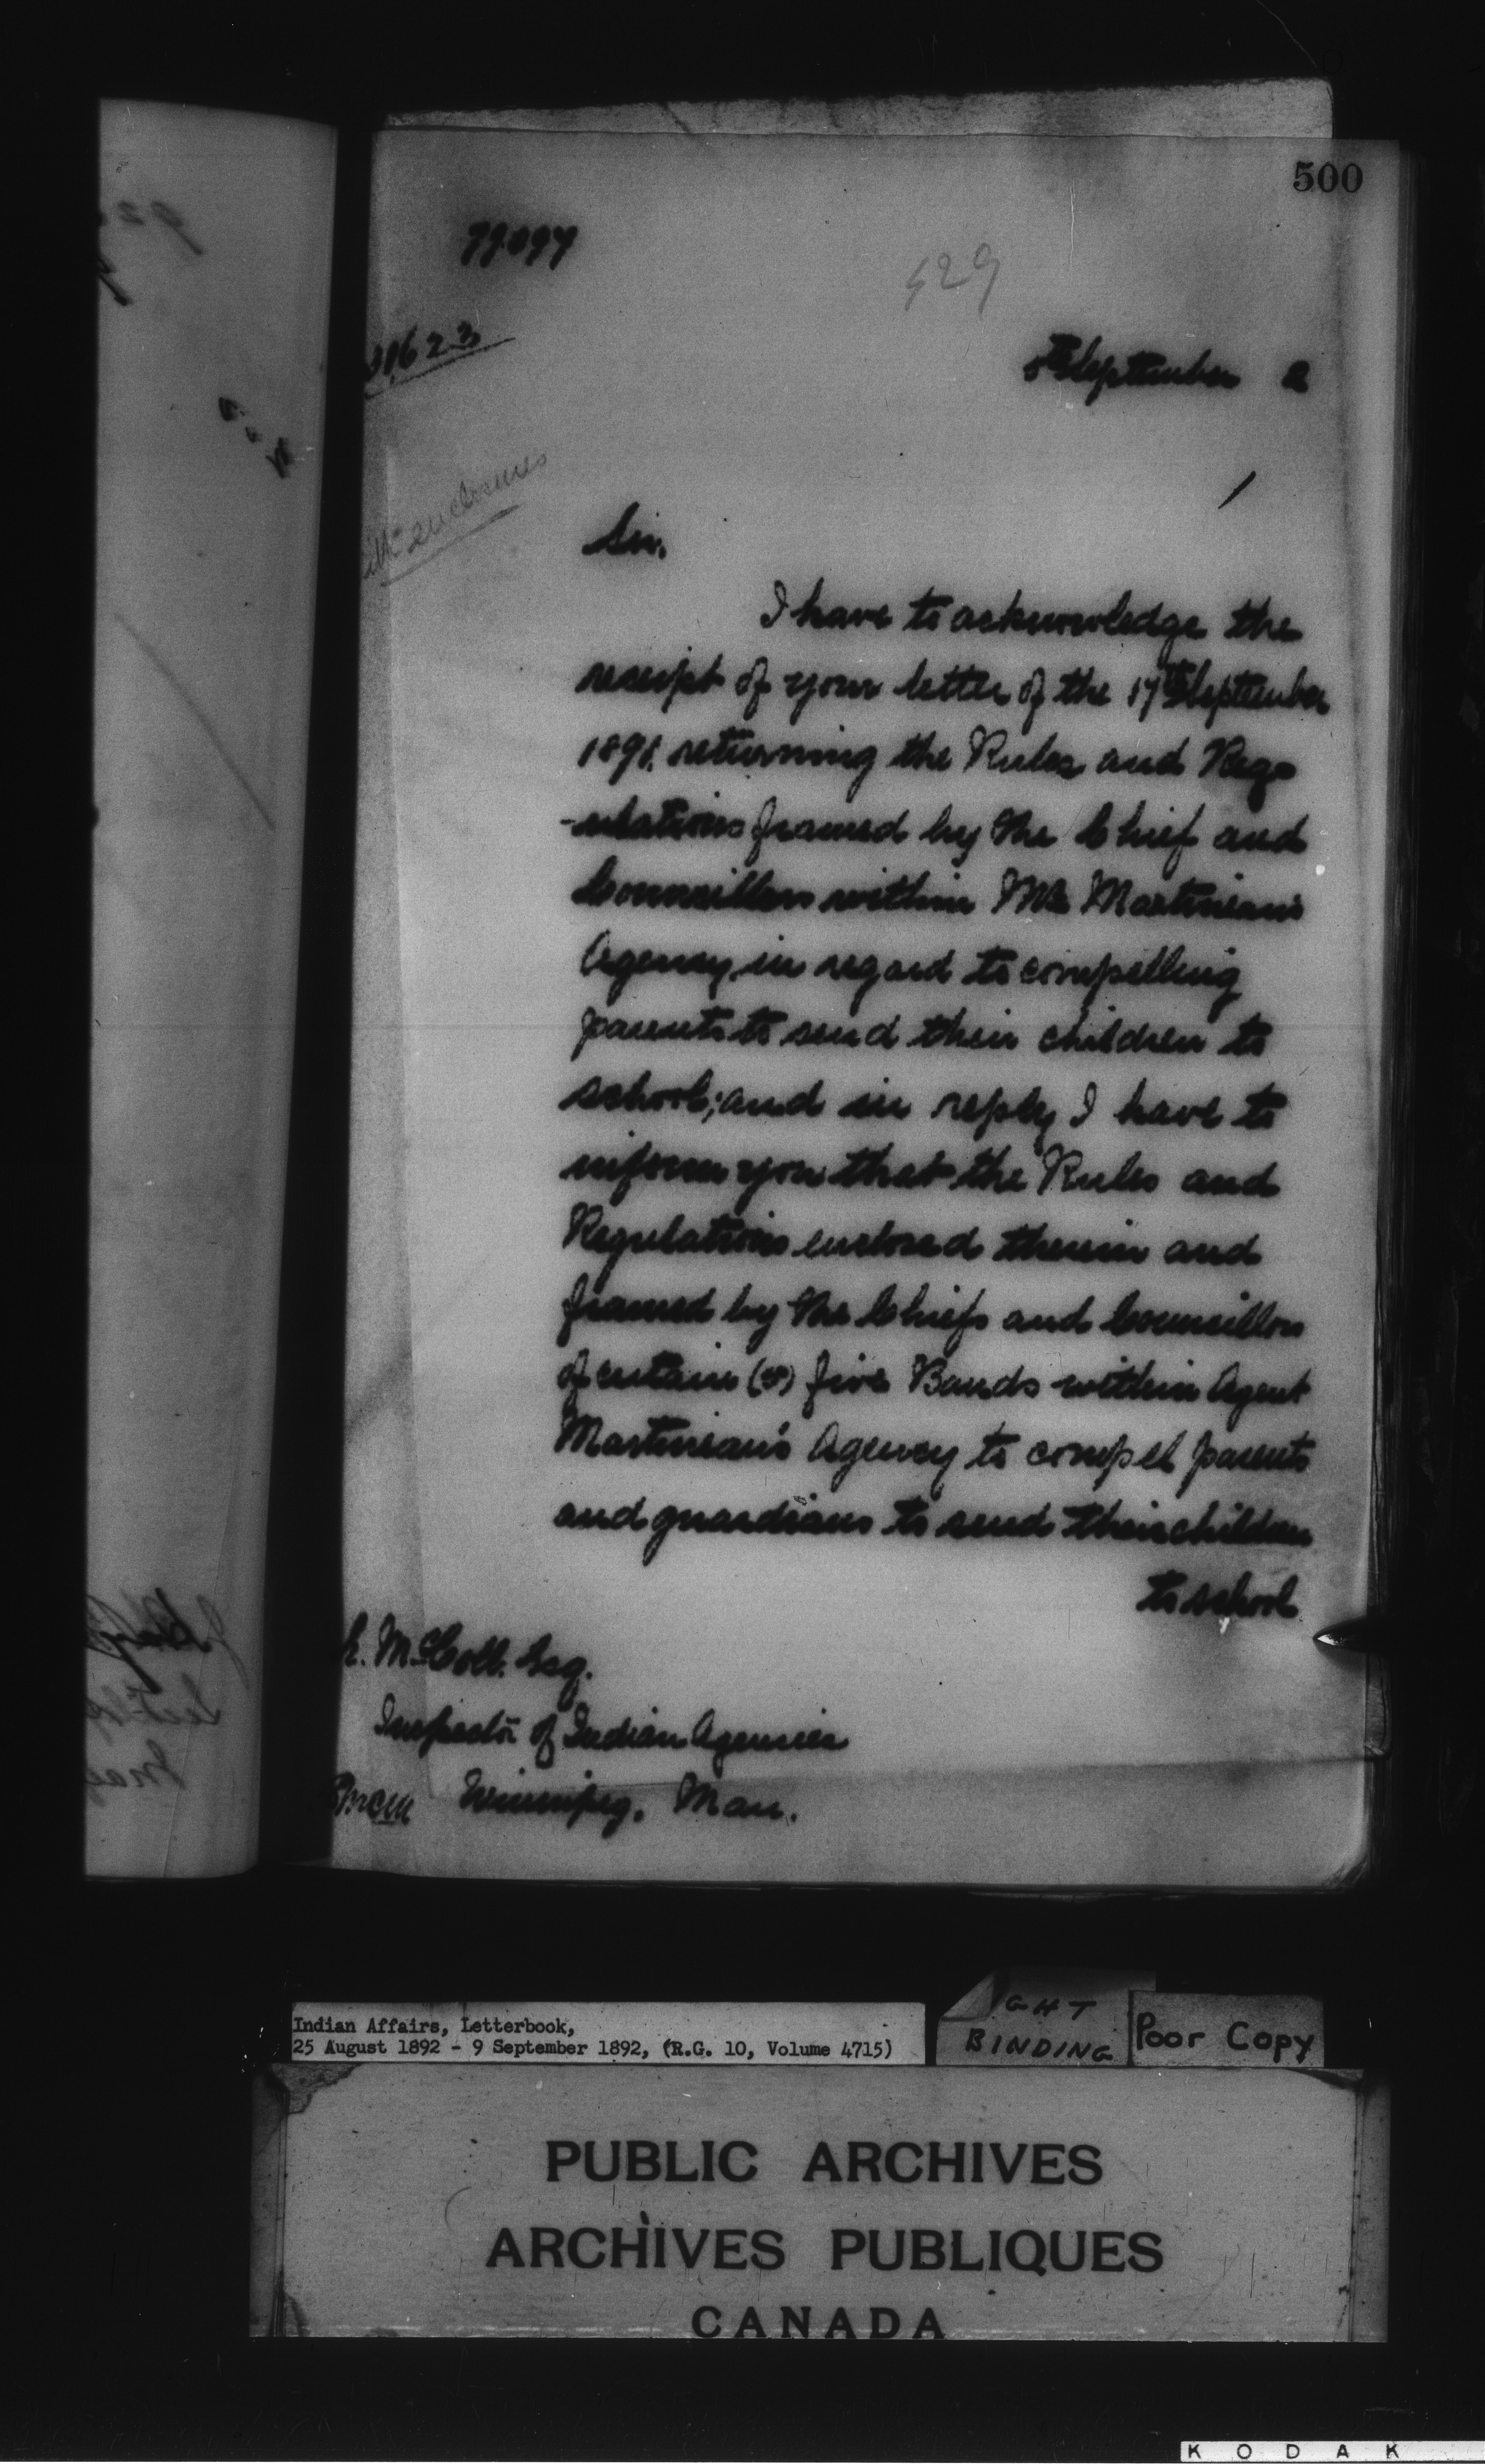 500
77.097
31623
429
5th September 2
Sir.
I have to acknowledge the
receipt of your letter of the 17th September
1891. returning the Rules and Reg-
-ulations framed by the Chief and
Councillors within Mr. Martineau's
Agency, in regard to compelling
parents to send their children to
school; and in reply I have to
inform you that the Rules and
Regulations enclosed therein and
framed by the Chiefs and Councillors
of certain (5) five Bands within Agent
Martineau's Agency to compel parents
and guardians to send their children
to school
E. McColl. Esq.
Inspector of Indian Agencies
Winnipeg, Man.
Indian Affairs, Letterbook,
25 August 1892 - 9 September 1892, (R.G. 10, Volume 4715)
GHT
BINDING
Poor Copy
PUBLIC ARCHIVES
ARCHIVES PUBLIQUES
CANADA
KODAK